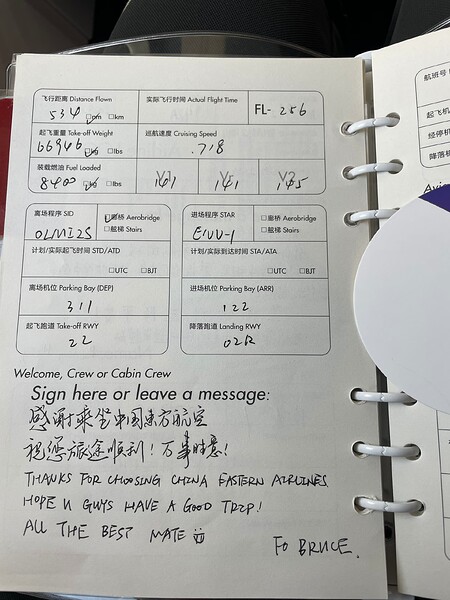 飞行距离 Distance Flown
534 □nm □km
实际飞行时间 Actual Flight Time
FL- 256
起飞重量 Take-off Weight
66946 □kg □lbs
巡航速度 Cruising Speed
.718
装载燃油 Fuel Loaded
8400 □kg □lbs
141 141 145
离场程序 SID
OLMI2S
□廊桥 Aerobridge
□舷梯 Stairs
进场程序 STAR
□廊桥 Aerobridge
□舷梯 Stairs
计划/实际起飞时间 STD/ATD
□UTC □BJT
计划/实际到达时间 STA/ATA
□UTC □BJT
离场机位 Parking Bay (DEP)
311
进场机位 Parking Bay (ARR)
122
起飞跑道 Take-off RWY
22
降落跑道 Landing RWY
02R
Welcome, Crew or Cabin Crew
Sign here or leave a message:
感谢乘坐中国东方航空
祝您旅途顺利！万事胜意！
THANKS FOR CHOOSING CHINA EASTERN AIRLINES
HOPE U GUYS HAVE A GOOD TRIP!
ALL THE BEST MATE
FO BRUCE.
航班号
起飞机
经停机
降落机